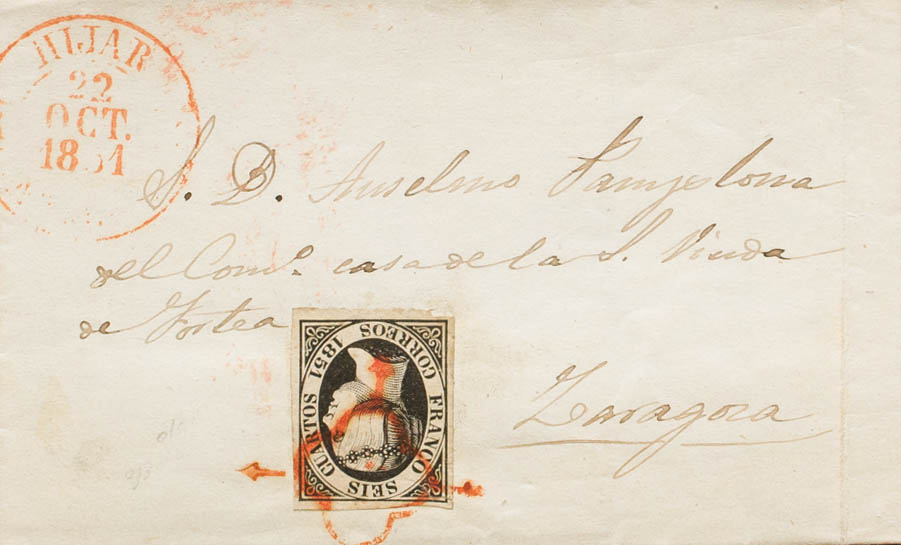 HIJAR
22
OCT.
18 51
S. D. Anselmo Pamplona
del Comº. casa de la S. Viuda
de Fortea
CORREOS 1851
FRANCO SEIS CUARTOS
Zaragoza